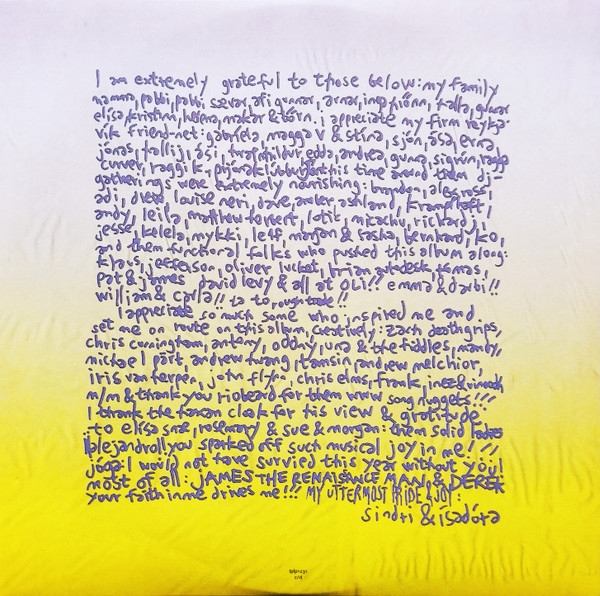 I am extremely grateful to those below: my family
mamma, pabbi, pabbi sævar, afi gunnar, arnar, inga hrönn, halla, gunnar
elísa, kristinn, & börn. i appreciate my firm reykja-
vík friend-net: gabríela, magga v & stína, sjón, ása, erna,
jónas, hallij, ási, edda, andrea, guna, sigrún, ragga
curver, raggi k, this time around them dj-
gatherings were extremely nourishing: brandon, alex ross,
adi, drew, louise neri, dave, asker, ashland, krampfhaft,
andy, leila, matthew herbert, lotic, micachu, richard, j,
jesse, kelela, mykki, leif, morgan & sasha, bernhard, ko,
and them functional folks who pushed this album along:
klaus, oliver lucket, brian autodesk, tomas,
pat & james, david levy & all at OLI!! emma & darbi!!
william & carla!! to to rough trade!!
I appreciate so much some who inspired me and
set me on route on this album, creatively: zach deathgrips,
chris cunningham, antony, oddný, una & the fiddles, mandy,
michael pärt, andrew twang, tamsin, andrew melchior,
iris van herpen, john flynn, chris elms, frank, inez & vinoodh
m/m & thank you rioheard for them www song nuggets!!!
I thank the haxan cloak for his view & gratitude
to elísa sná, rosemary & sue & morgan: them solid
alejandro!! you sparked off such musical joy in me!!!,
jóga: I would not have survied this year without you!
most of all: JAMES THE RENAISANCE MAN & DEREK
your faith in me drives me!!! MY UTTERMOST PRIDE & JOY:
sindri & ísadóra